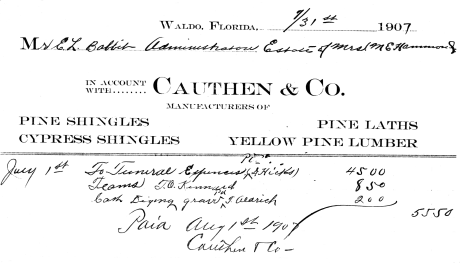 WALDO, FLORIDA, 7/31st 1907
Mr E L Babbit Administrator Estate of Mrs M E Hammond
IN ACCOUNT WITH........ CAUTHEN & CO.
MANUFACTURERS OF
PINE SHINGLES PINE LATHS
CYPRESS SHINGLES YELLOW PINE LUMBER
July 1st To Funeral Expenses Hicks 45 00
Teams T.O. Kennard 8 50
Cash Diging grave Pd J Aldrich 2 00
55 50
Paid Aug 1st 1907
Cauthen & Co—